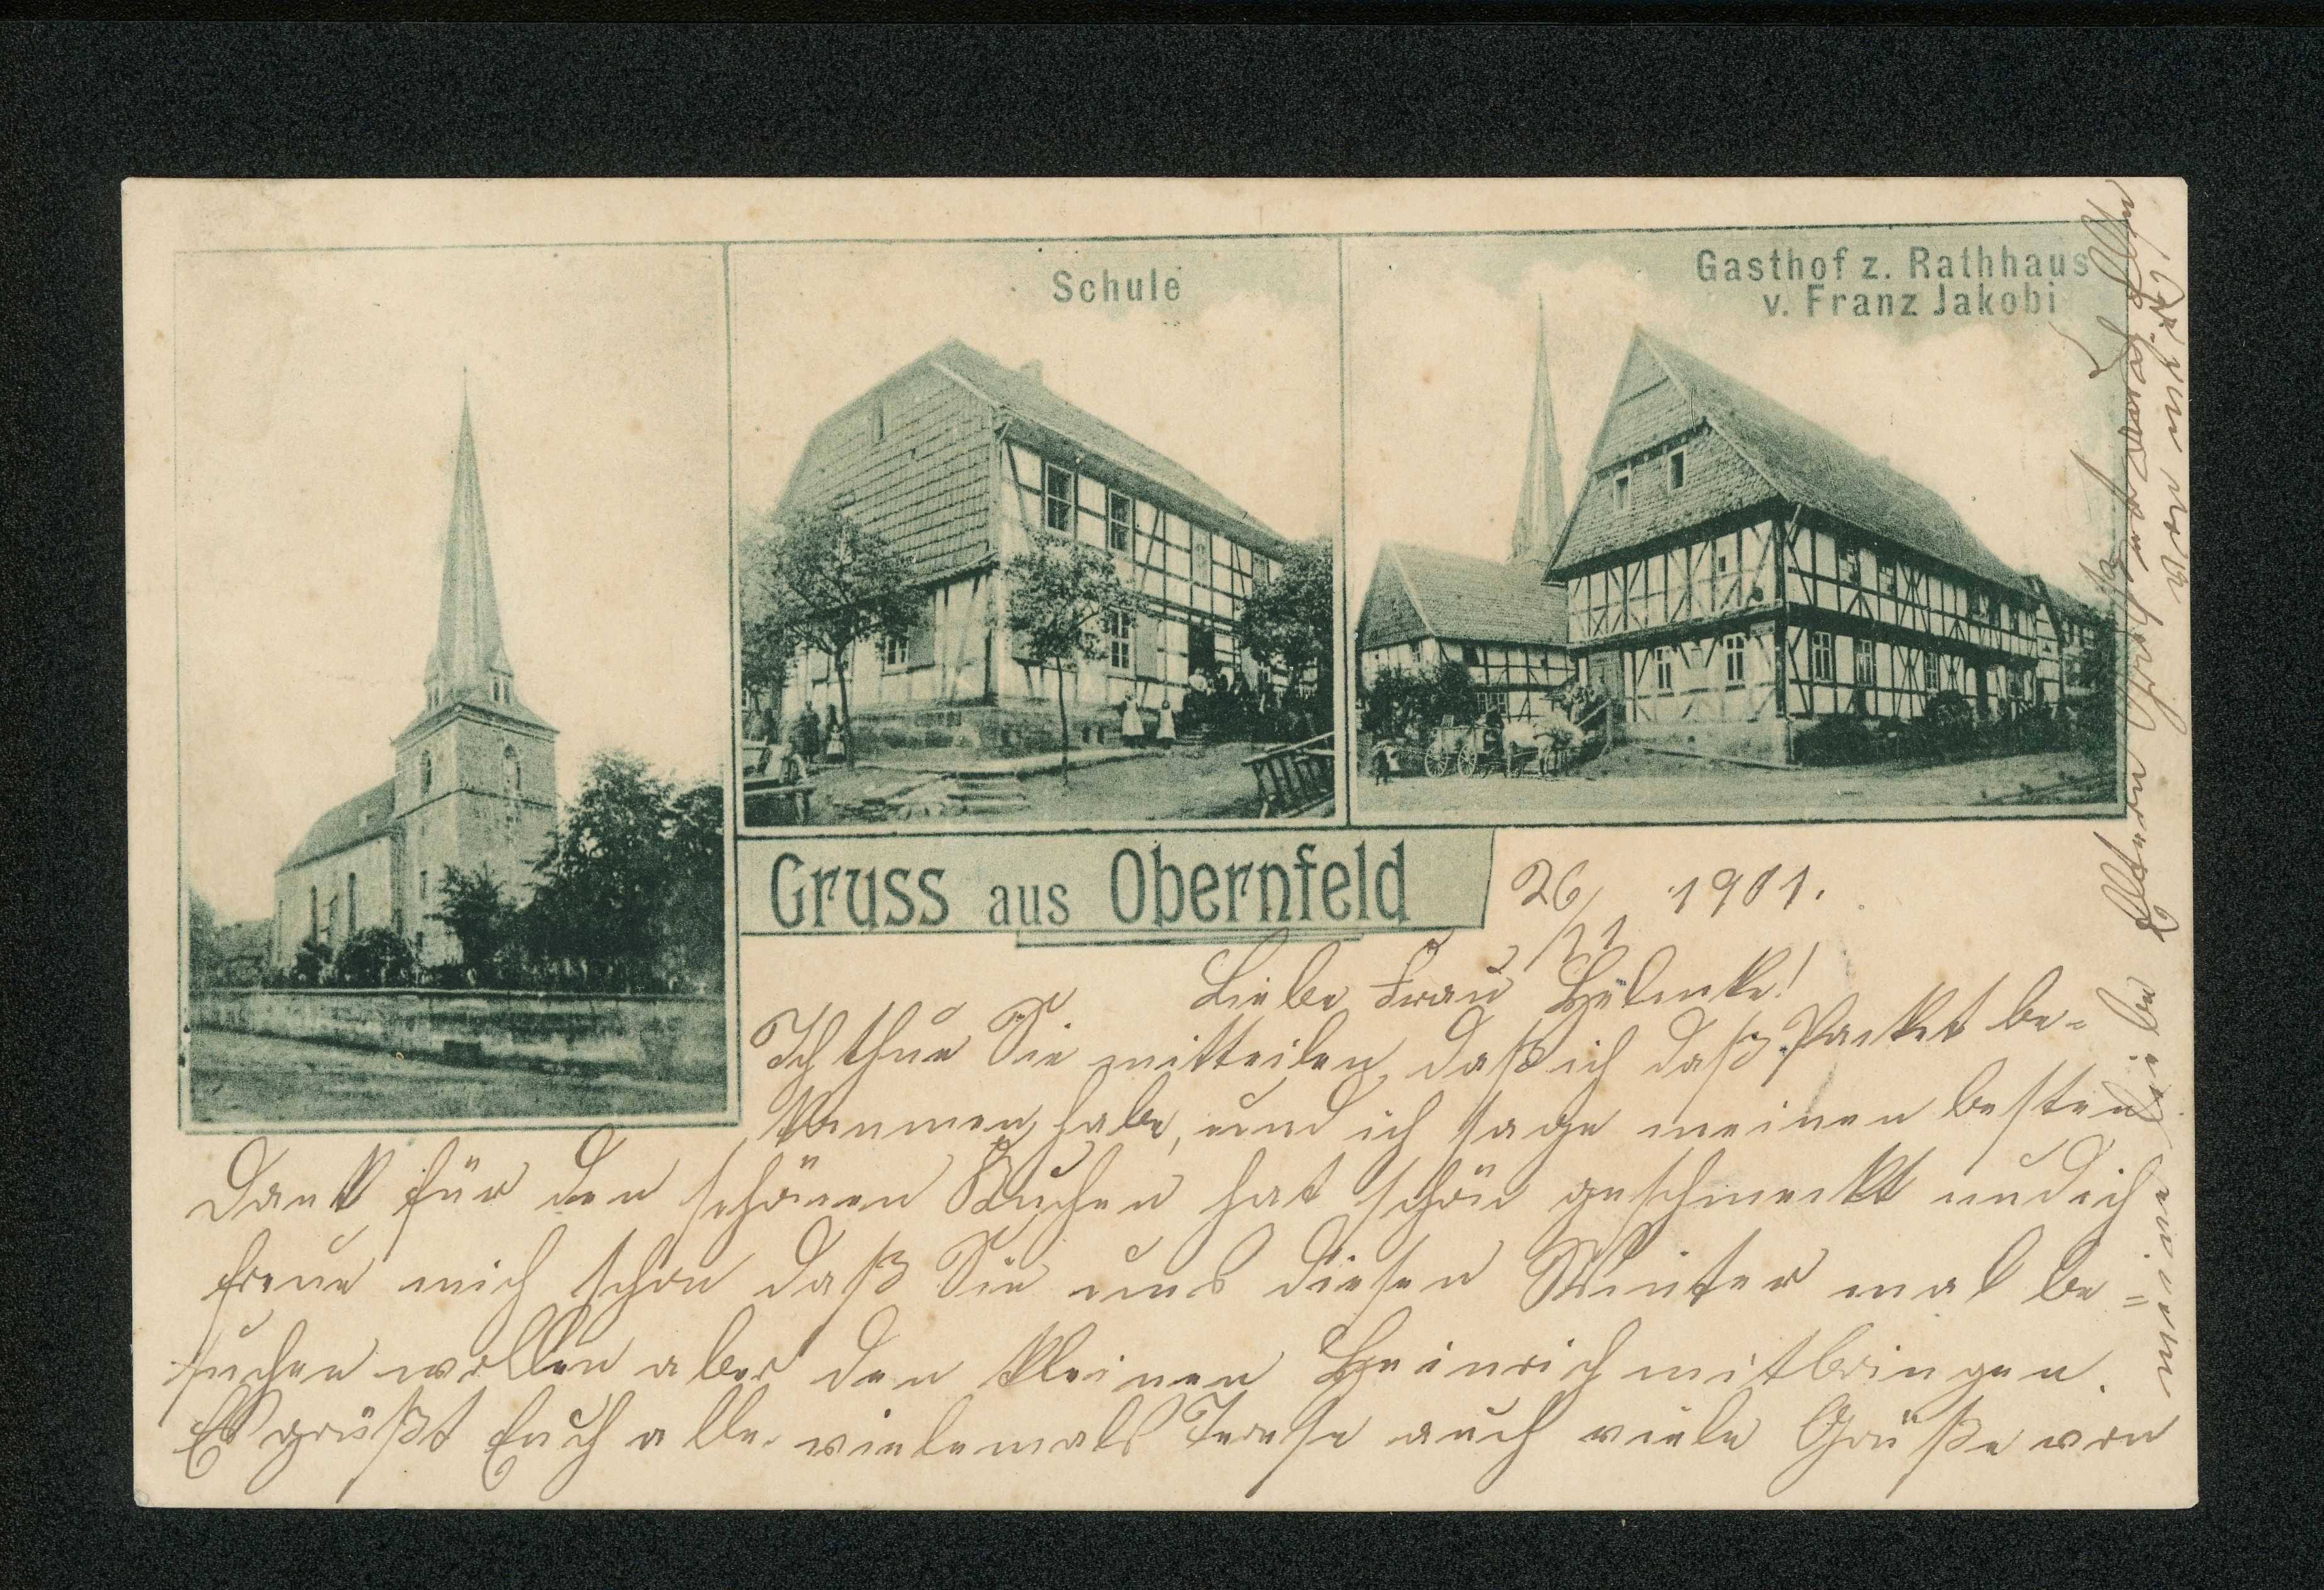 Schule
Gasthof z. Rathhaus
v. Franz Jakobi
Gruss aus Obernfeld
26/11 1901.
Liebe Frau
Ich thue Sie mitteilen, daß ich daß Packet be=
kommen habe, und ich sage meinen besten
Dank für den schönen Kuchen hat schön geschmeckt und ich
freue mich schon daß Sie uns diesen Winter mal be=
suchen wollen aber den kleinen Heinrich mitbringen.
Es grüßt Euch alle vielemals Terese auch viele Grüße von
meine liebe Eltern